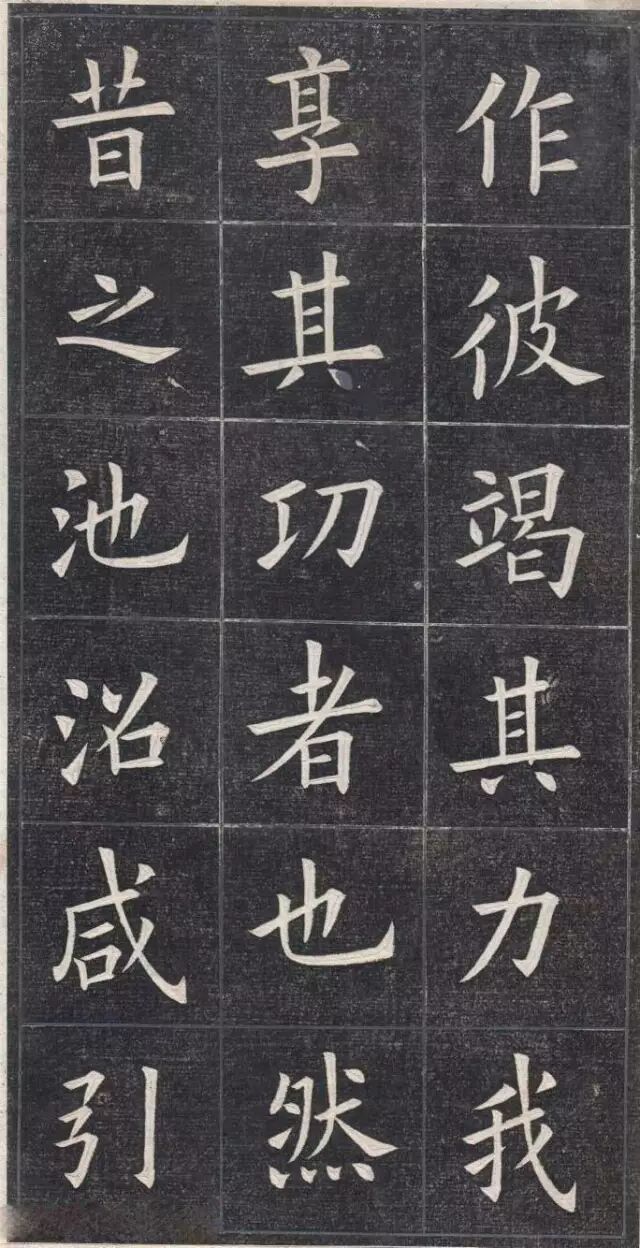 作彼竭其力我
享其功者也然
昔之池沼咸引